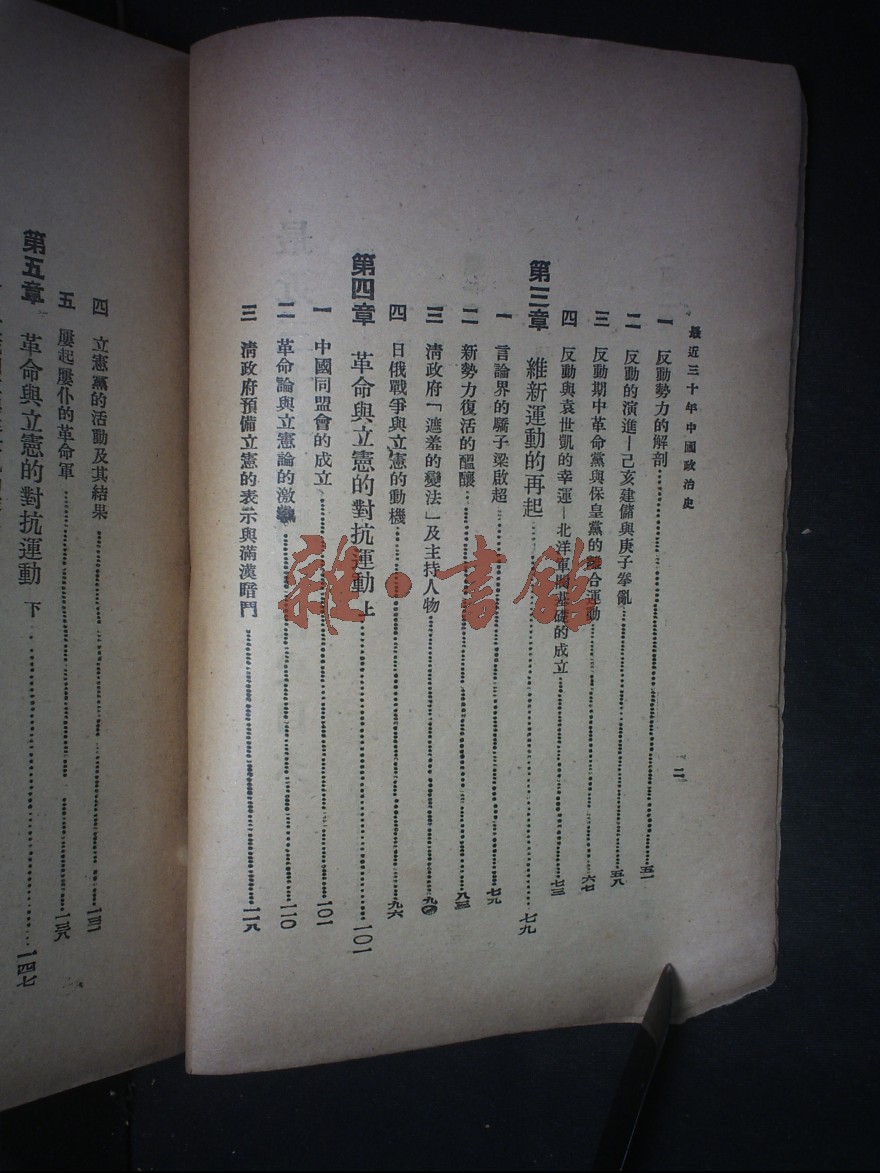 最近三十年中國政治史
二
一 反動勢力的解剖 五一
二 反動的演進—己亥建儲與庚子拳亂 五八
三 反動期中革命黨與保皇黨的離合運動 六七
四 反動與袁世凱的幸運—北洋軍閥基礎的成立 七三
第三章 維新運動的再起 七九
一 言論界的驕子梁啟超 七九
二 新勢力復活的醞釀 八三
三 淸政府「遮羞的變法」及主持人物 九〇
四 日俄戰爭與立憲的動機 九六
第四章 革命與立憲的對抗運動 上 一〇一
一 中國同盟會的成立 一〇一
二 革命論與立憲論的激戰 一一〇
三 淸政府預備立憲的表示與滿漢暗鬥 一一八
四 立憲黨的活動及其結果
五 屢起屢仆的革命軍 一三八
第五章 革命與立憲的對抗運動 下 一四七
雜·書館